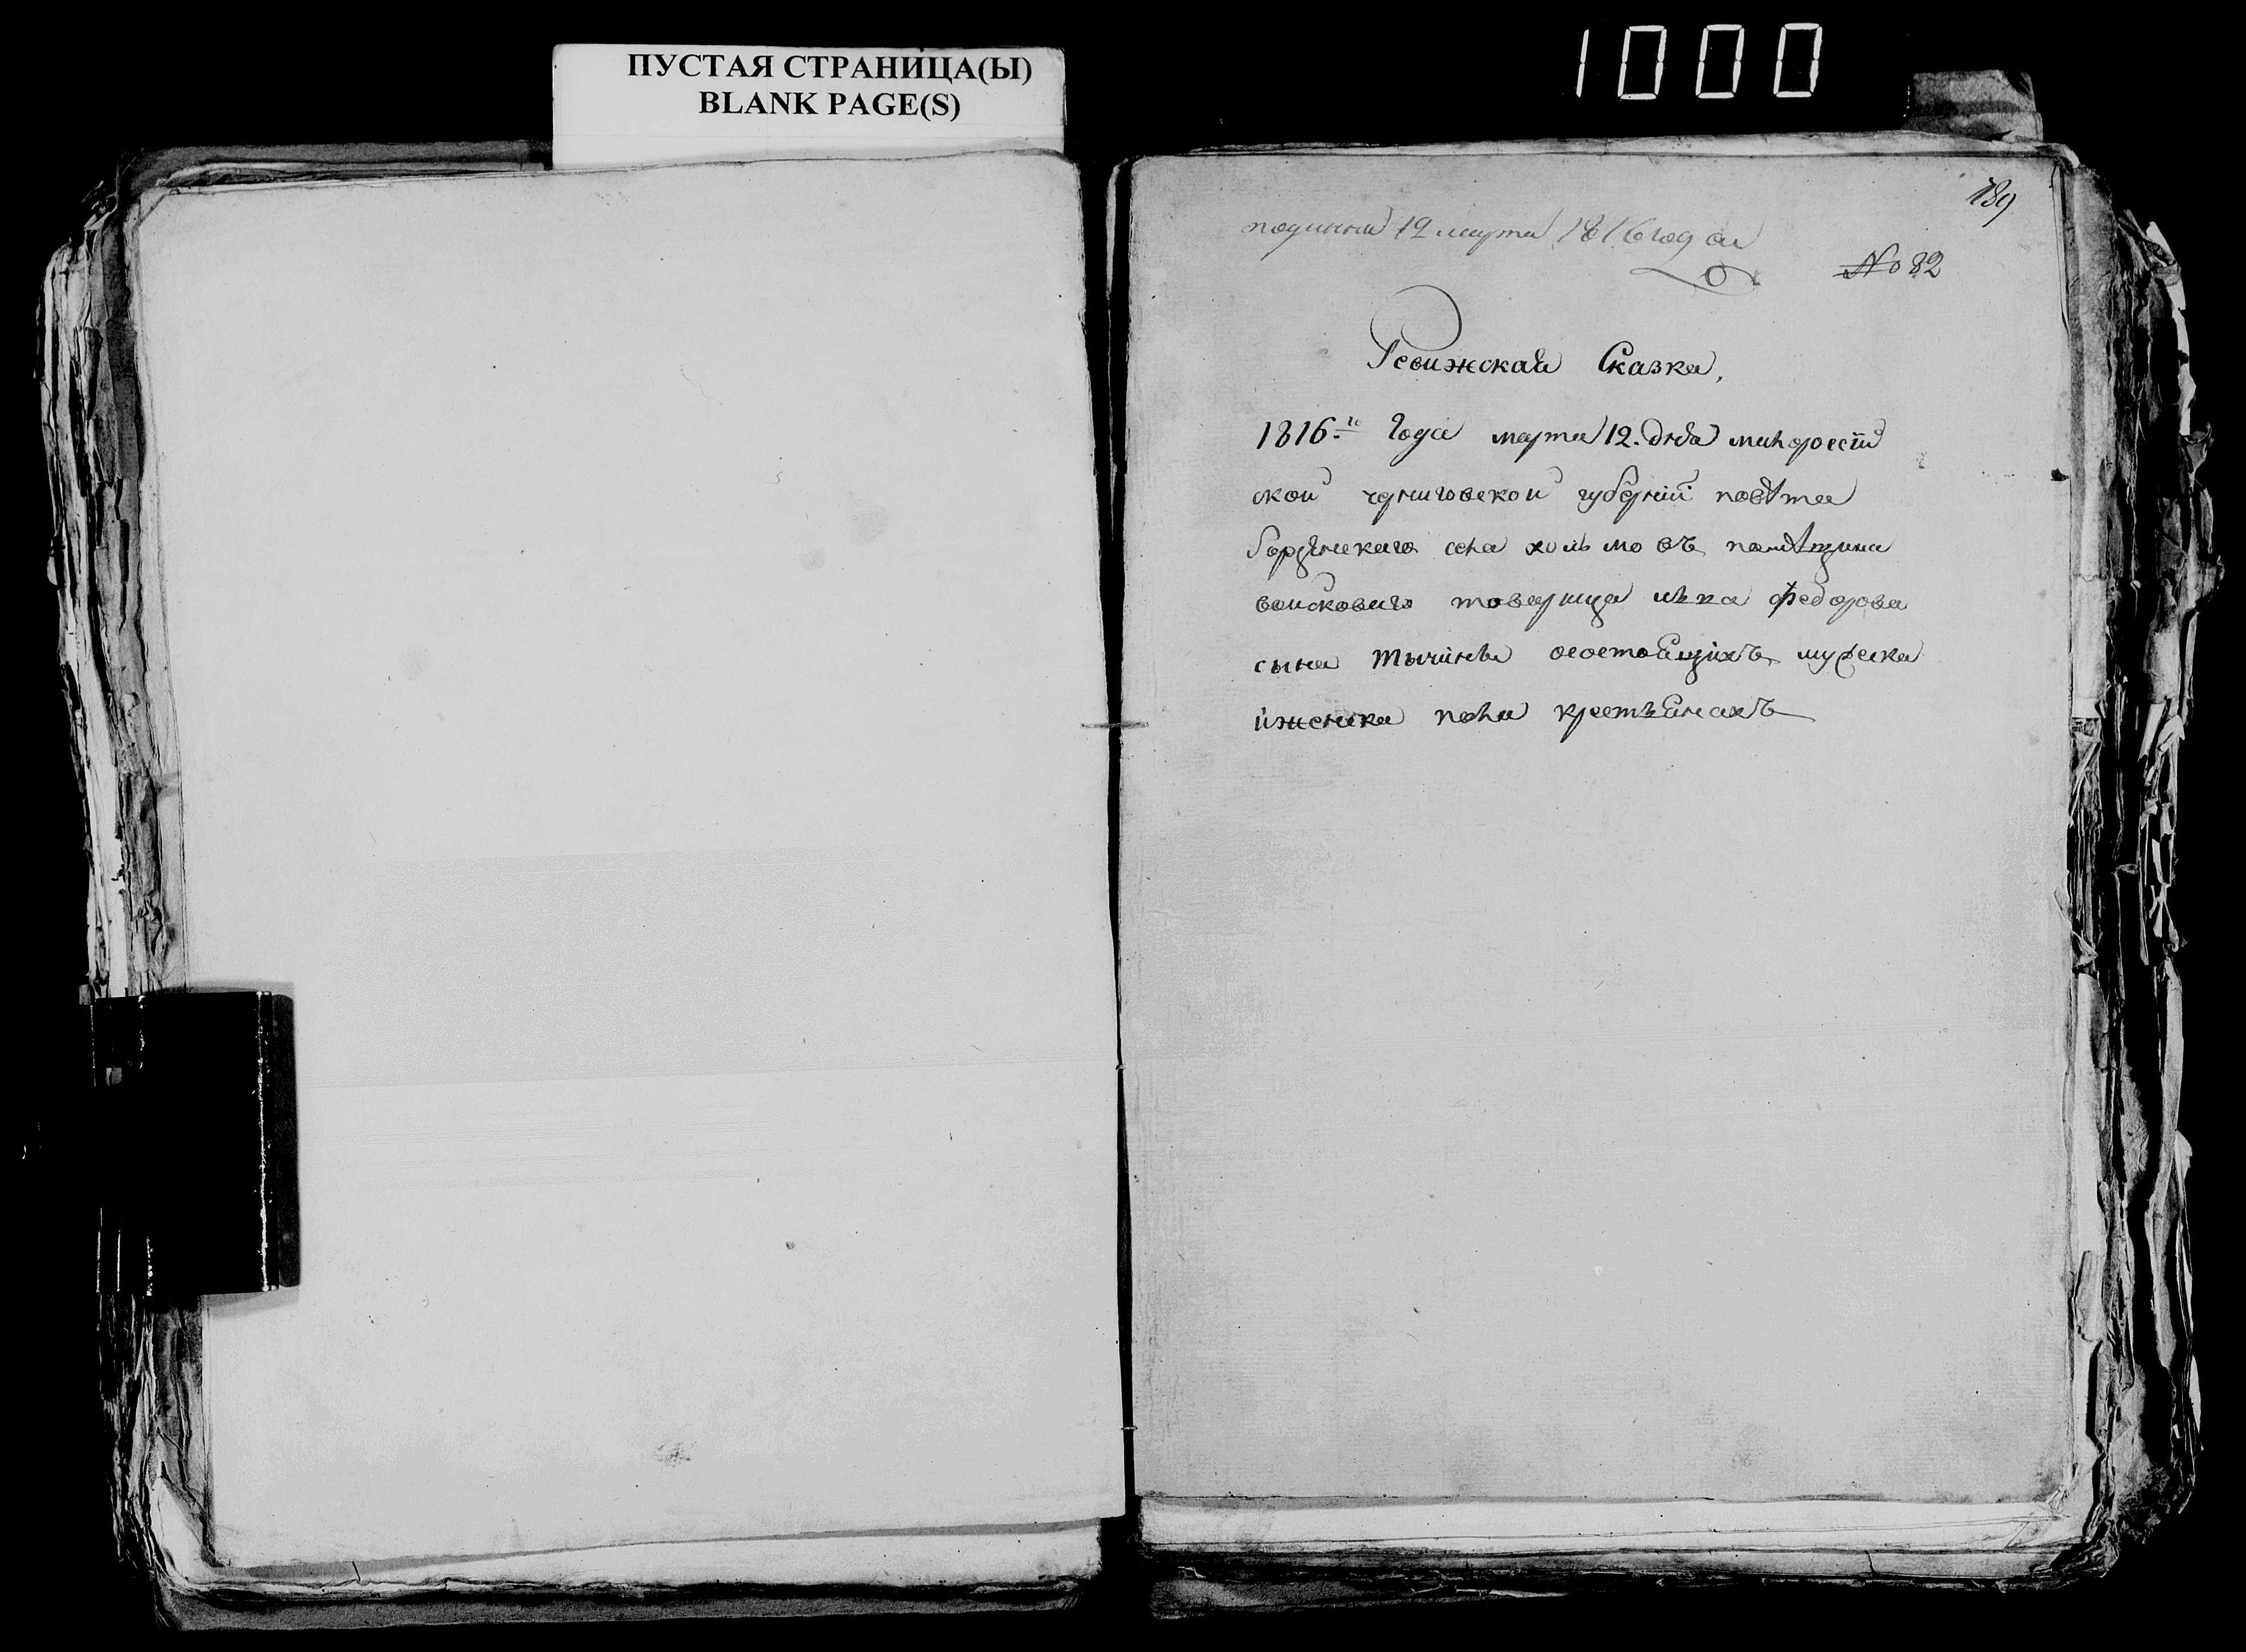 ПУСТАЯ СТРАНИЦА(Ы)
BLANK PAGE(S)
1000
789
подинна 12 марта 1816 года
№ 82
Ревижская Сказка,
1816.го Года марта 12. дня малоросій
ской черниговской губерній повѣта
борзенскаго села холь мовъ помѣщика
войсковаго товарища федорова
сына состоящихъ мужеска
иженска пола крестьянахъ